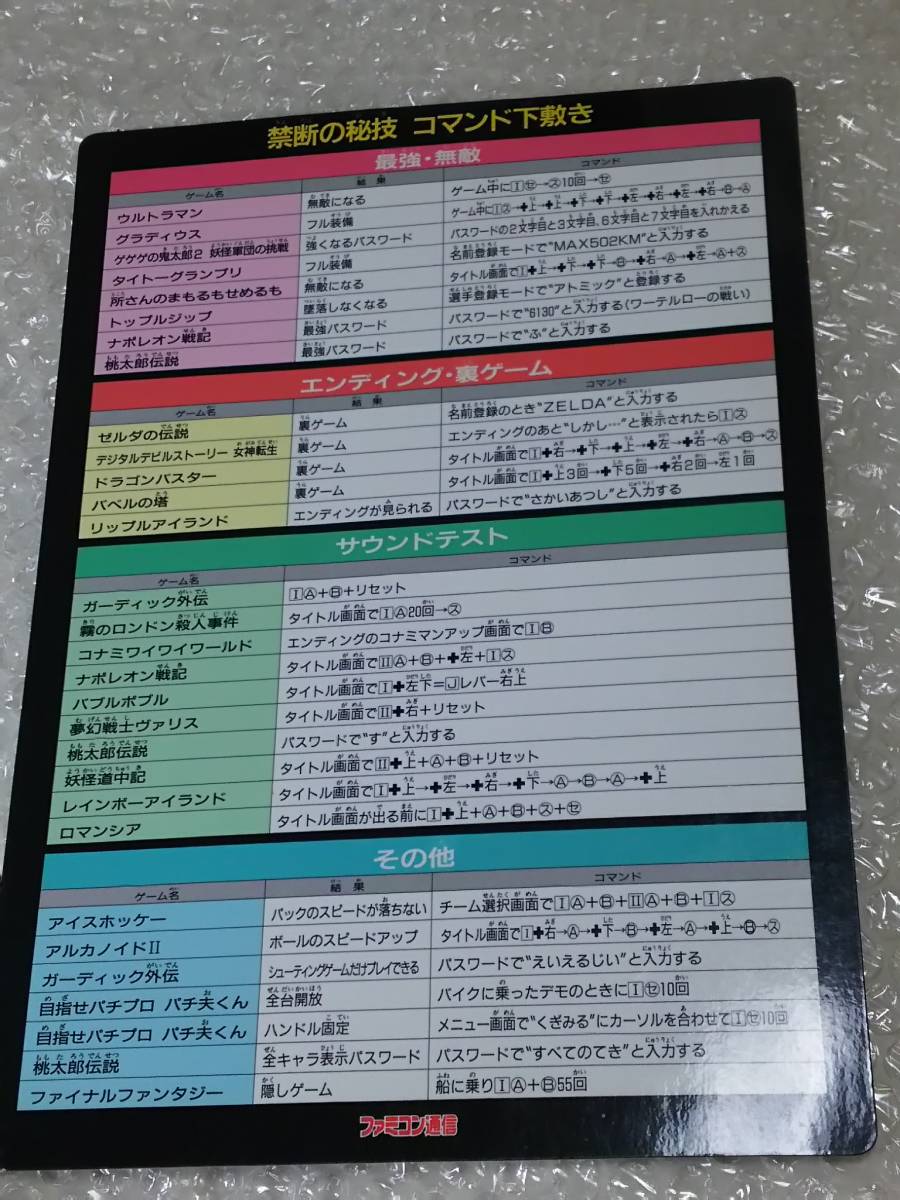 禁断の秘技 コマンド下敷き
最強・無敵
ゲーム名 結果 コマンド
ウルトラマン 無敵になる ゲーム中にⒾ㋝→㋜10回→㋝
グラディウス フル装備 ゲーム中にⒾ㋜→✚上→✚上→✚下→✚下→✚左→✚右→✚左→✚右→Ⓑ→Ⓐ
ゲゲゲの鬼太郎2 妖怪軍団の挑戦 強くなるパスワード パスワードの2文字目と3文字目、6文字目と7文字目を入れかえる
タイトーグランプリ フル装備 名前登録モードで“MAX502KM”と入力する
所さんのまもるもせめるも 無敵になる タイトル画面でⒾ✚上→✚下→✚下→Ⓑ→✚右→Ⓐ→✚左→Ⓐ+㋜
トップルジップ 墜落しなくなる 選手登録モードで“アトミック”と登録する
ナポレオン戦記 最強パスワード パスワードで“6130”と入力する(ワーテルローの戦い)
桃太郎伝説 最強パスワード パスワードで“ふ”と入力する
エンディング・裏ゲーム
ゲーム名 結果 コマンド
ゼルダの伝説 裏ゲーム 名前登録のとき“ZELDA”と入力する
デジタルデビルストーリー 女神転生 裏ゲーム エンディングのあと“しかし…”と表示されたらⒾ㋜
ドラゴンバスター 裏ゲーム タイトル画面でⒾ✚右→✚下→✚上→✚左→✚右→Ⓐ→Ⓑ→㋜
バベルの塔 裏ゲーム タイトル画面でⒾ✚上3回→✚下5回→✚右2回→左1回
リップルアイランド エンディングが見られる パスワードで“さかいあつし”と入力する
サウンドテスト
ゲーム名 コマンド
ガーディック外伝 ⒾⒶ+Ⓑ+リセット
霧のロンドン殺人事件 タイトル画面でⒾⒶ20回→㋜
コナミワイワイワールド エンディングのコナミマンアップ画面でⒾⒷ
ナポレオン戦記 タイトル画面でⅡⒶ+Ⓑ+✚左+Ⓘ㋜
バブルボブル タイトル画面でⒾ✚左下=Ⓙレバー右上
夢幻戦士ヴァリス タイトル画面でⅡ✚右+リセット
桃太郎伝説 パスワードで“す”と入力する
妖怪道中記 タイトル画面でⅡ✚上+Ⓐ+Ⓑ+リセット
レインボーアイランド タイトル画面でⒾ✚上→✚左→✚右→✚下→Ⓐ→Ⓑ→Ⓐ→✚上
ロマンシア タイトル画面が出る前にⒾ✚上+Ⓐ+Ⓑ+㋜+㋝
その他
ゲーム名 結果 コマンド
アイスホッケー パックのスピードが落ちない チーム選択画面でⒾⒶ+Ⓑ+ⅡⒶ+Ⓑ+Ⓘ㋜
アルカノイドⅡ ボールのスピードアップ タイトル画面でⒾ✚右→Ⓐ→✚下→Ⓑ→✚左→Ⓐ→✚上→Ⓑ→㋜
ガーディック外伝 シューティングゲームだけプレイできる パスワードで“えいえるじい”と入力する
目指せパチプロ パチ夫くん 全台開放 バイクに乗ったデモのときにⒾ㋝10回
目指せパチプロ パチ夫くん ハンドル固定 メニュー画面で“くぎみる”にカーソルを合わせてⒾ㋝10回
桃太郎伝説 全キャラ表示パスワード パスワードで“すべてのてき”と入力する
ファイナルファンタジー 隠しゲーム 船に乗りⒾⒶ+Ⓑ55回
ファミコン通信